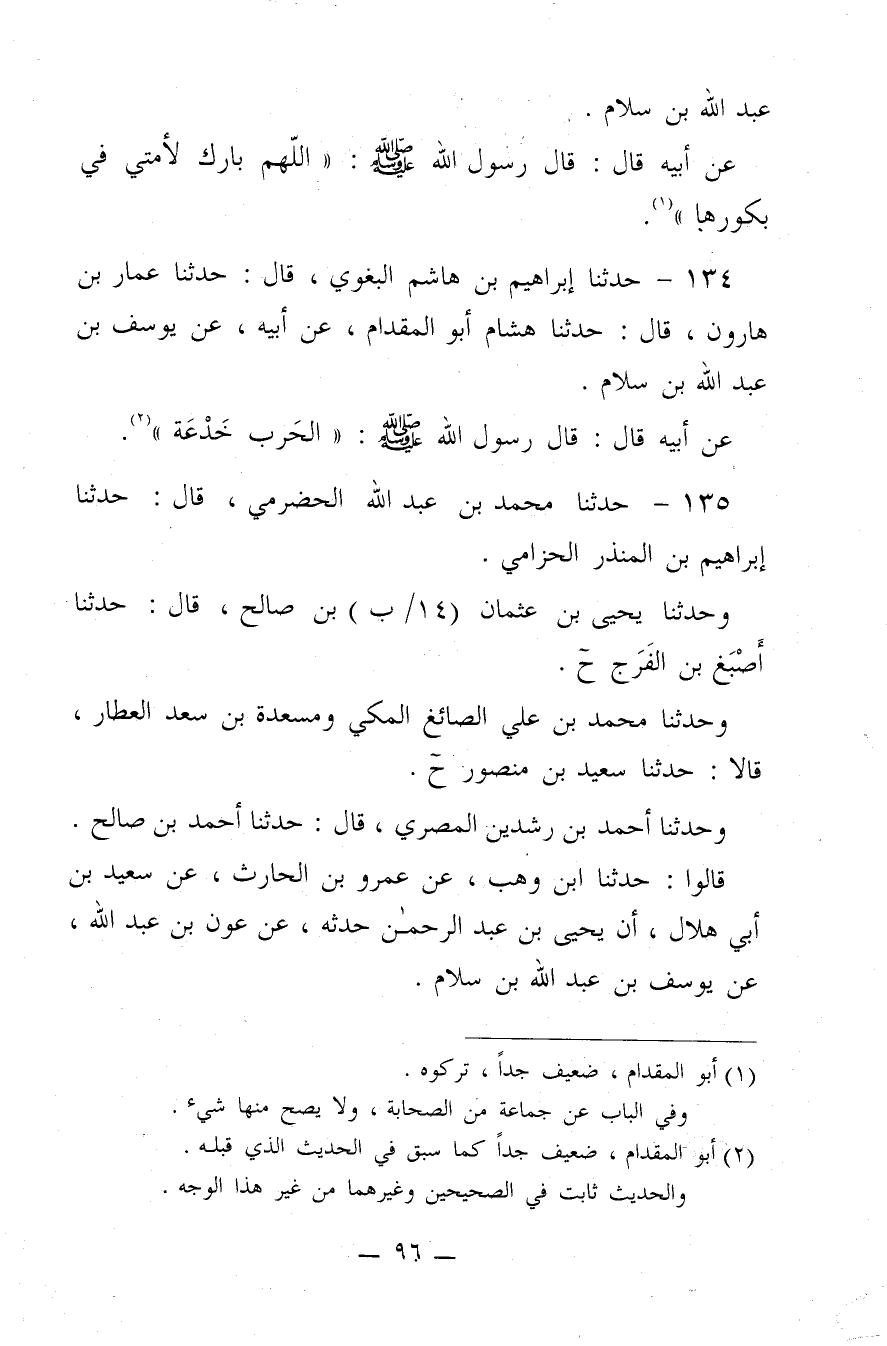 عبد الله بن سلام .
عن أبيه قال : قال رسول الله ﷺ : « اللّهم بارك لأمتي في
بكورها »(١).
١٣٤ - حدثنا إبراهيم بن هاشم البغوي ، قال : حدثنا عمار بن
هارون ، قال : حدثنا هشام أبو المقدام ، عن أبيه ، عن يوسف بن
عبد الله بن سلام .
عن أبيه قال : قال رسول الله ﷺ : « الحَرب خَدْعَة »(٢).
١٣٥ - حدثنا محمد بن عبد الله الحضرمي ، قال : حدثنا
إبراهيم بن المنذر الحزامي .
وحدثنا يحيى بن عثمان (١٤/ ب ) بن صالح ، قال : حدثنا
أَصْبَغ بن الفَرَج حٓ .
وحدثنا محمد بن علي الصائغ المكي ومسعدة بن سعد العطار ،
قالا : حدثنا سعيد بن منصور حٓ .
وحدثنا أحمد بن رشدين المصري ، قال : حدثنا أحمد بن صالح .
قالوا : حدثنا ابن وهب ، عن عمرو بن الحارث ، عن سعيد بن
أبي هلال ، أن يحيى بن عبد الرحمـٰن حدثه ، عن عون بن عبد الله ،
عن يوسف بن عبد الله بن سلام .
(١) أبو المقدام ، ضعيف جداً ، تركوه .
وفي الباب عن جماعة من الصحابة ، ولا يصح منها شيء .
(٢) أبو المقدام ، ضعيف جداً كما سبق في الحديث الذي قبله .
والحديث ثابت في الصحيحين وغيرهما من غير هذا الوجه .
— ٩٦ —